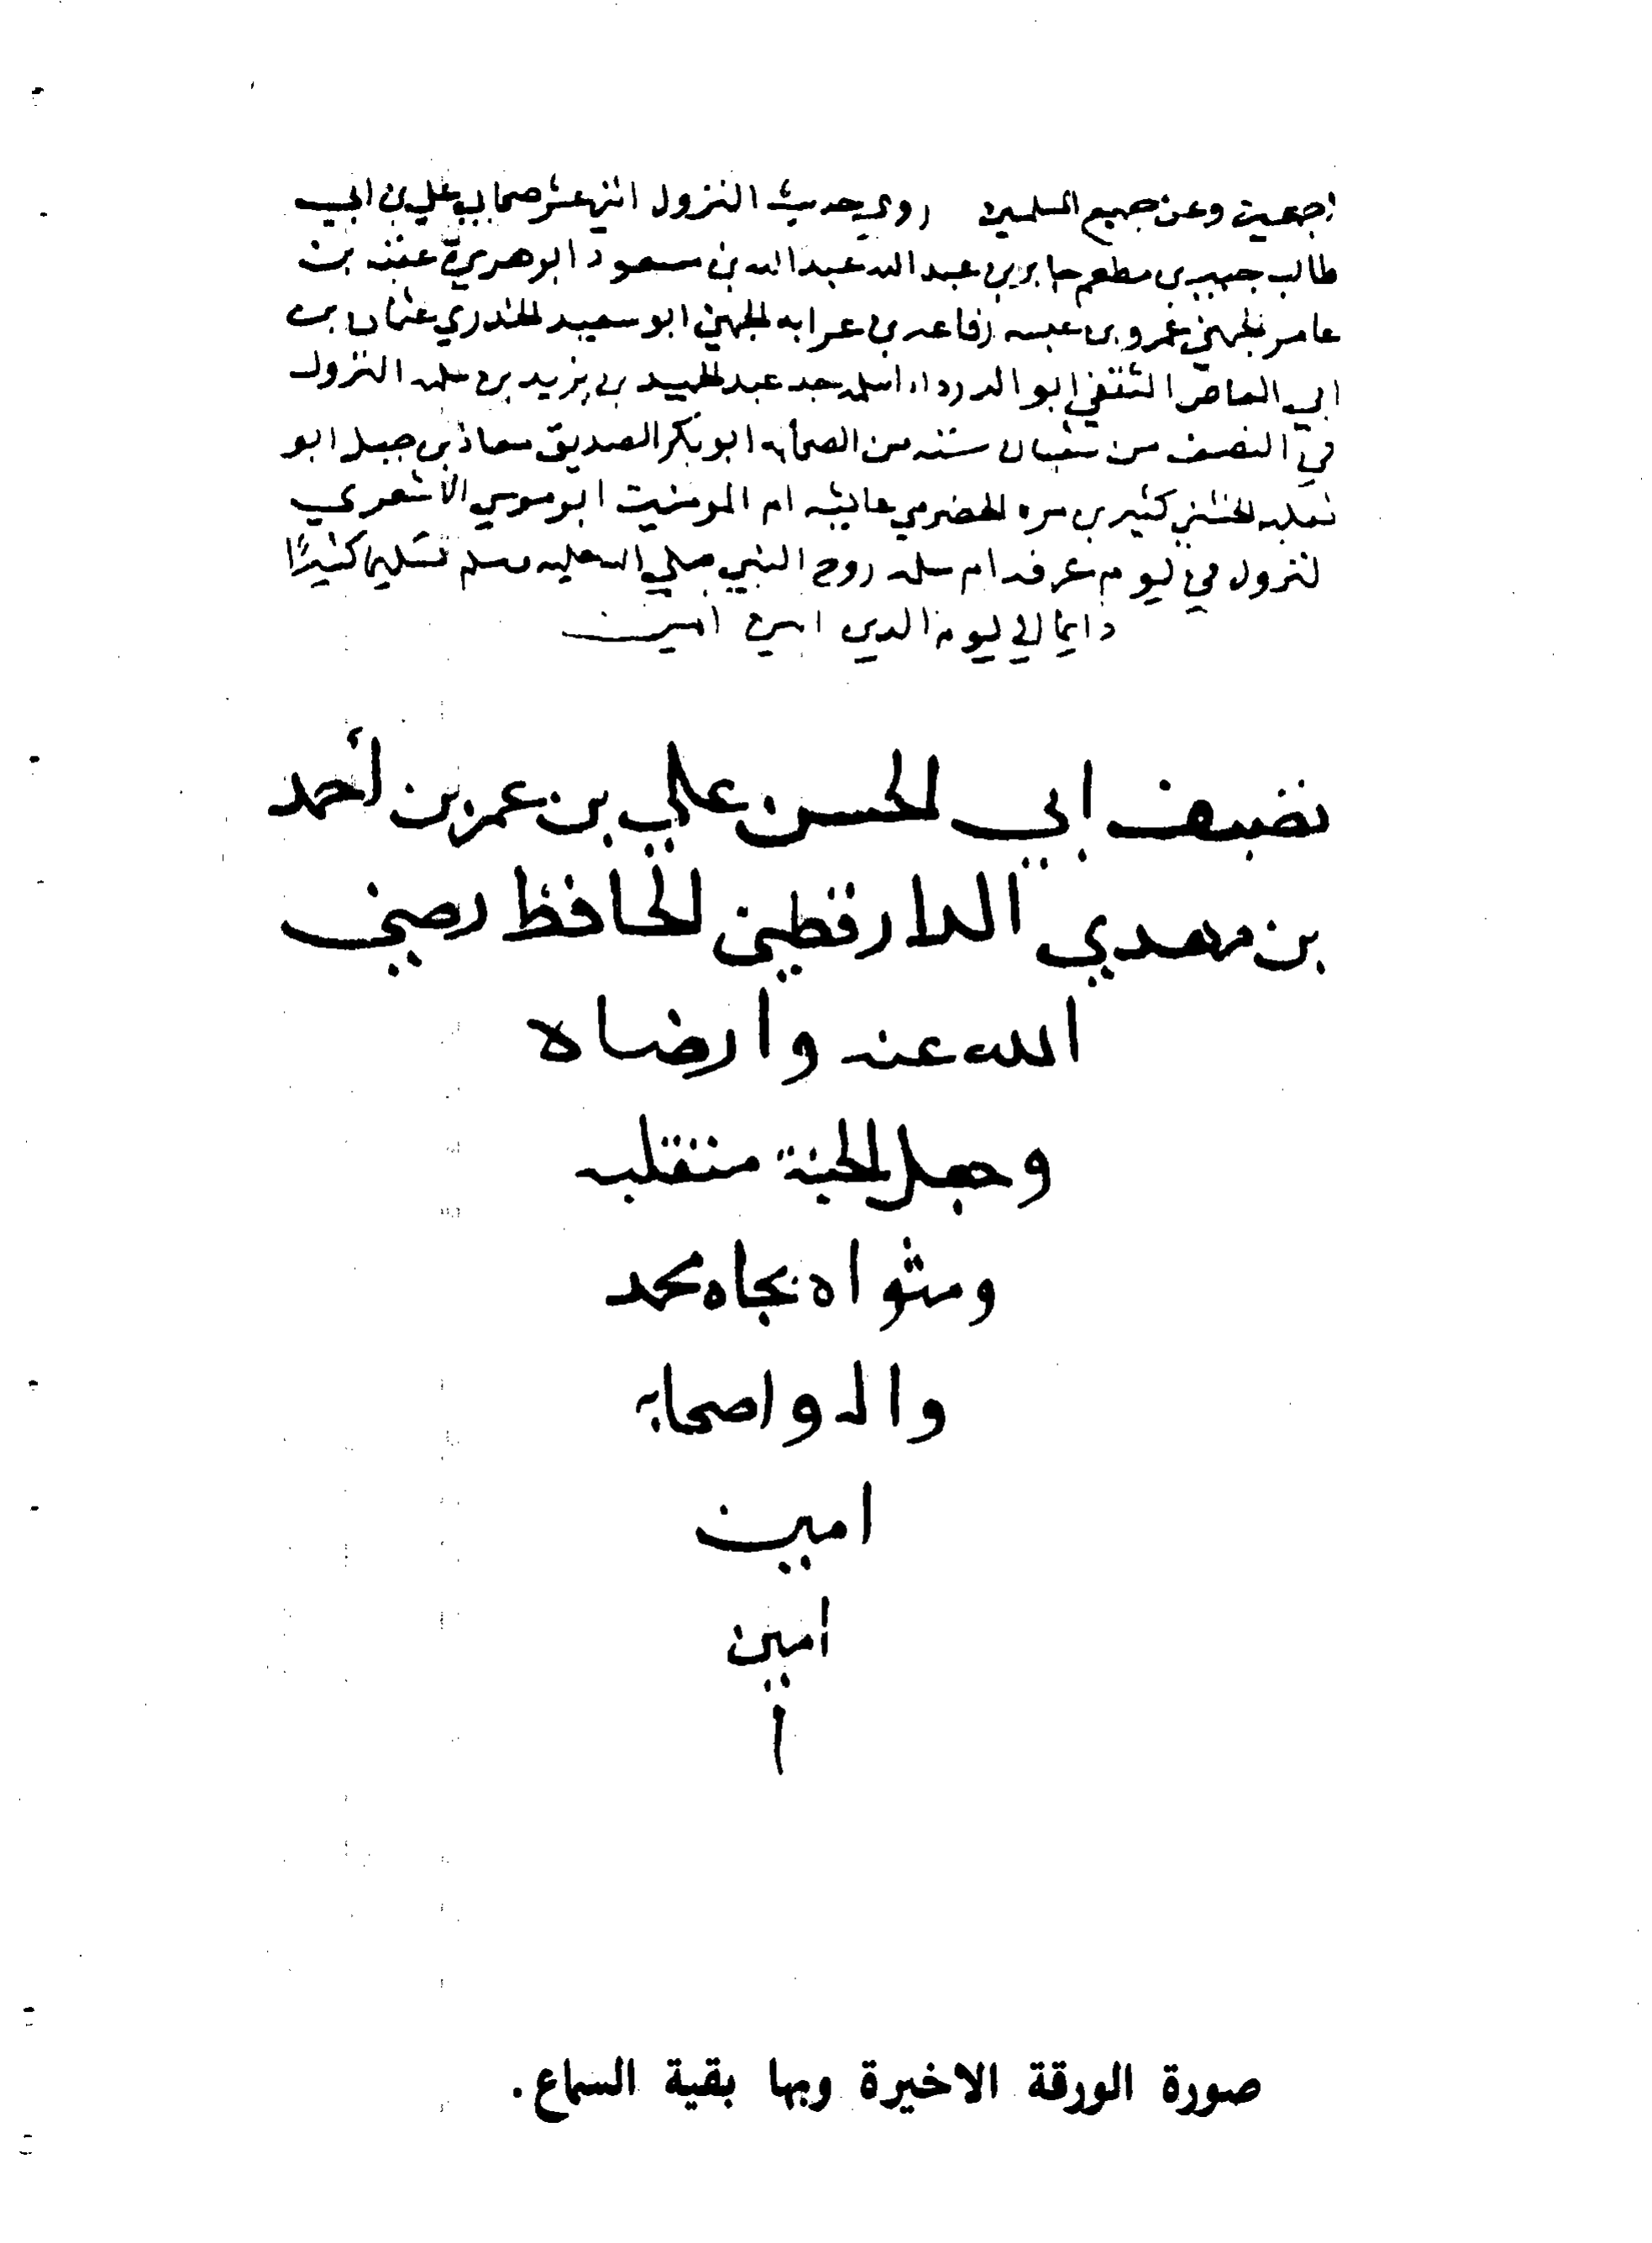 اجمعين وعن جميع المسلمين روي حديث النزول اثني عشر صحابي علي بن ابي
طالب جبير بن مطعم جابر بن عبد الله عبد الله بن مسعود ابو هريرة عقبه بن
عامر الجهني عمرو بن عبسه رفاعه بن عرابه الجهني ابو سعيد الخدري عثمان بن
ابي العاص الثقفي ابو الدرداء اسلمه جد عبد الحميد بن يزيد بن سلمه النزول
في النصف من شعبان سته من الصحابه ابو بكر الصديق معاذ بن جبل ابو
ثعلبه الخشني كثير بن مره الحضرمي عايشه ام المومنين ابو موسي الاشعري
النزول في ليوم عرفه ام سلمه زوج النبي صلي الله عليه وسلم تسليما كثيرًا
دايما الي يوم الدين امين امين
تصنيف ابي الحسن علي بن عمر بن أحمد
بن مهدي الدارقطني الحافظ رضي
الله عنه وارضاه
وجعل الجنة متقلبه
ومثواه بجاه محمد
واله واصحابه
امين
امين
ا
صورة الورقة الاخيرة وبها بقية السماع.